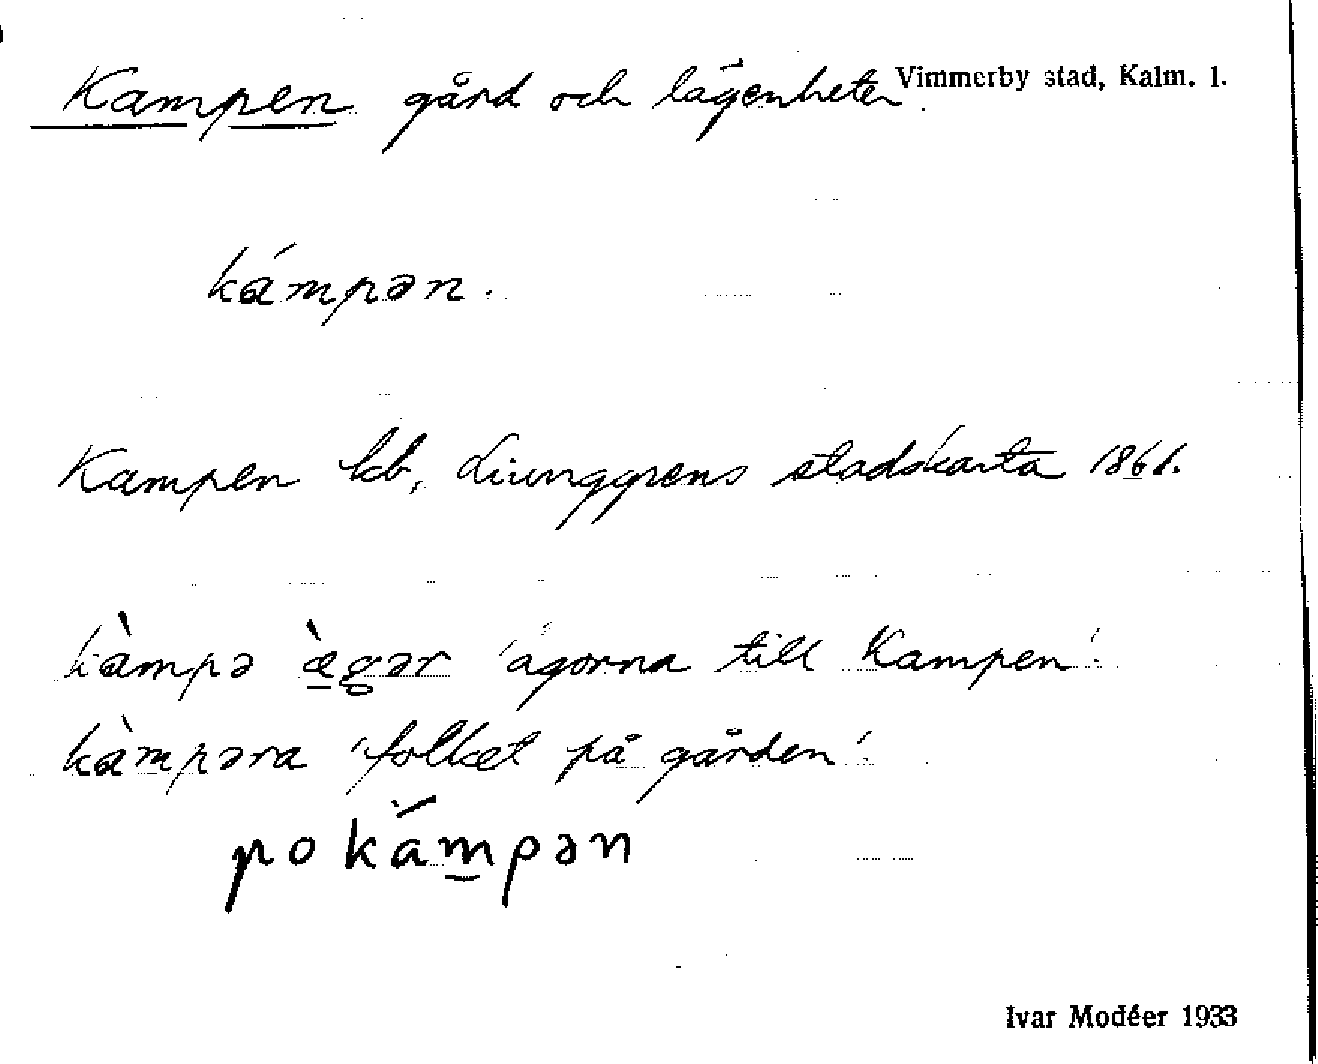 Kampen gård och lägenheter. Vimmerby stad, Kalm. l.
kámpən.
Kampen kb, Liunggrens stadskarta 1861.
kàmpə ægər 'ägorna till Kampen'.
kàmpəra 'folket på gården'.
po kámpən
Ivar Modéer 1933